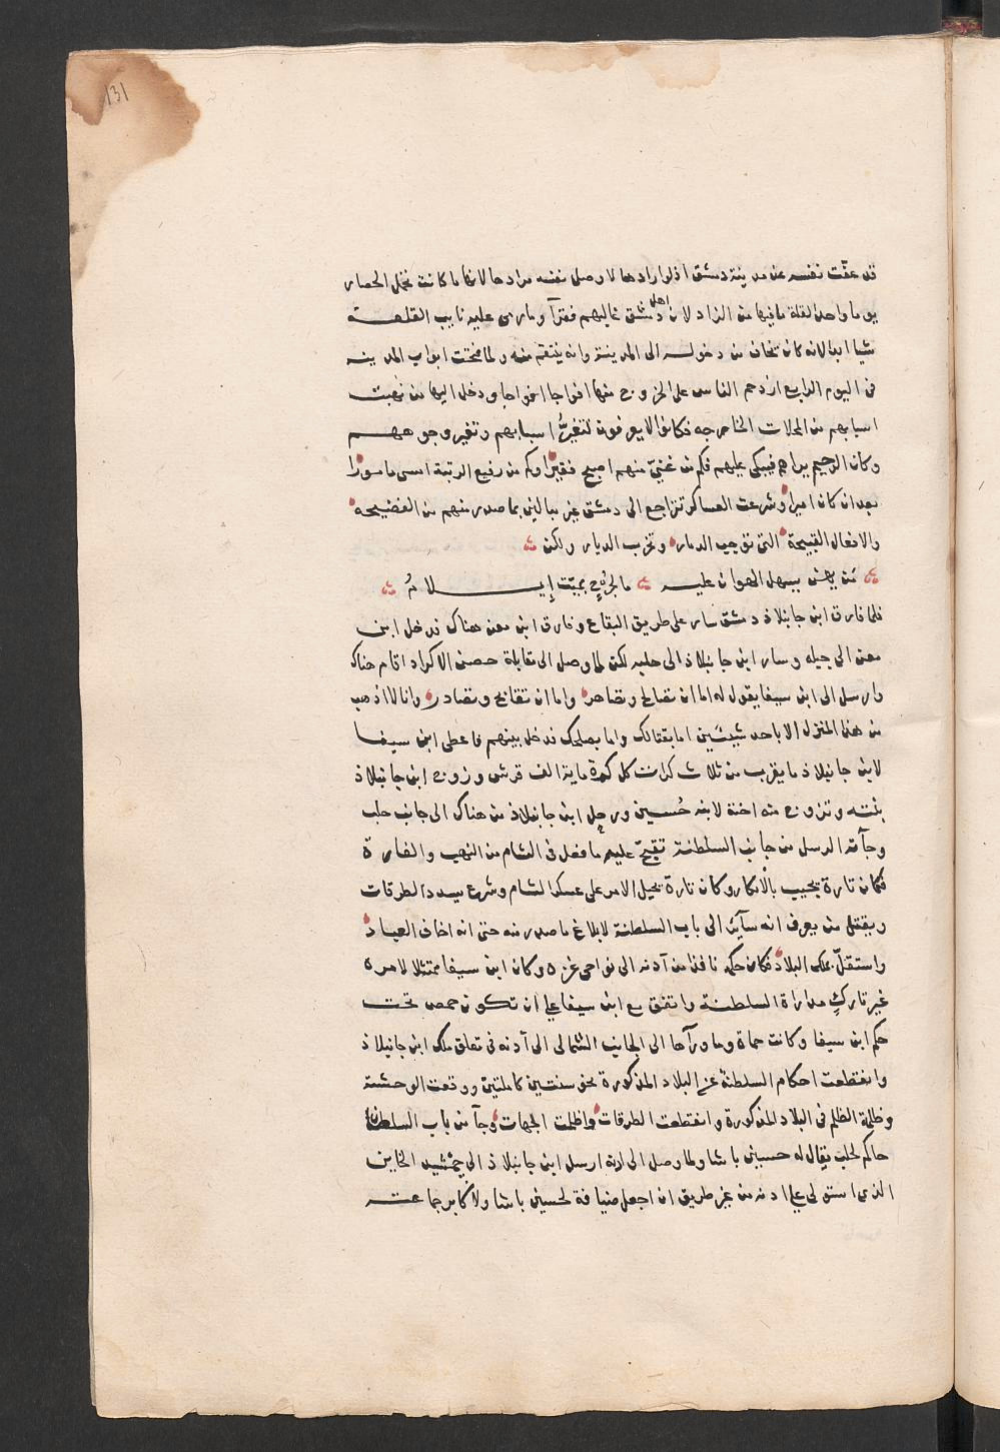 131
قد عفّت نفسه عن مدينة دمشق اذ لو ارادها لاوصل نفسه مرادها لانها ما كانت تحمل الحصار
يوما واحدا لقلة ما فيها من الزاد لان اهل دمشق غالبهم فقرآ وما رمى عليه نايب القلعــة
شيا ابدا لانه كان تخاف من دخولــه الى المدينة وانه ينتقم منه ولما فتحت ابواب المدينــه
في اليوم الرابع ازدحم الناس على الخروج منها افواجا افواجا ودخل اليها من نهبت
اسبابهم من المحلات الخارجه فكانوا لا يعرفون لتغيّر اسبابهم وتغير وجوههــم
وكان الرحيم يراهم فيبكى عليهم فكم من غنيّ منهم اصبح فقيرًا وكم من رفيع الرتبة امسى مامورًا
بعد ان كان اميرًا وشرعت العساكر تتراجع الى دمشق غير مبالين بما صدر منهم من الفضيحه
والافعال القبيحة التى توجب الدمار وتخرب الديار ولكن
مَن يهُن يسهل الهوان عليــه ما لجُرحٍ بميّت إيــلامُ
فلما فارق ابن جانبلاذ دمشق سار على طريق البقاع وفارق ابن معن هناك فدخل ابن
معن الى جبله وسار ابن جانبلاذ الى حلبه لكن لما وصل الى مقابلة حصن الاكراد اقام هناك
وارسل الى ابن سيفا يقول له اما ان تصالح وتصاهر واما ان تقابح وتصادر وانا لا اذهب
من هذا المنزل الا باحد شيئين اما بقتالك واما بصلحك فدخل بينهم فاعطى ابن سيفــا
لابن جانبلاذ ما يقرب من ثلاث كرات كل كرة ماية الف قرش وزوج ابن جانبلاذ
بنتــه وتزوج منه اخته لابنه حُسين ورحل ابن جانبلاذ من هناك الى جانب حلب
وجآته الرسل من جانب السلطنة تقبح عليه ما فعل فى الشام من النهب والغارة
فكان تارة يجيب بالانكار وكان تارة يحيل الامر على عسكر الشام وشرع يسدد الطرقات
ويقتل من يعرف انه سآير الى باب السلطنة لابلاغ ما صدر منه حتى انه اخاف العباد
واستقلّ بملك البلاد فكان حكمه نافذا من آدنه الى نواحى غزه وكان ابن سيفا ممتثلا لامره
غير تاركٍ مداراة السلطنــة واتفق مع ابن سيفا على ان تكون حمص تحت
حكم ابن سيفا وكانت حماة وما ورآها الى الجانب الشمالى الى آدنه فى تعلق ملك ابن جانبلاذ
وانقطعت احكام السلطنة عن البلاد المذكورة نحو سنتين كاملتين ووقعت الوحشة
وظلمة الظلم فى البلاد المذكورة وانقطعت الطرقات واظلمت الجهات وجآ من باب السلطنة
حاكم لحلب يقال له حسين باشا ولما وصل الى ادنه ارسل ابن جانبلاذ الى جمشيد الخاين
الذى استولى على ادنه من غير طريق ان اجعل ضيافة لحسين باشا ولاكابر جماعتــه